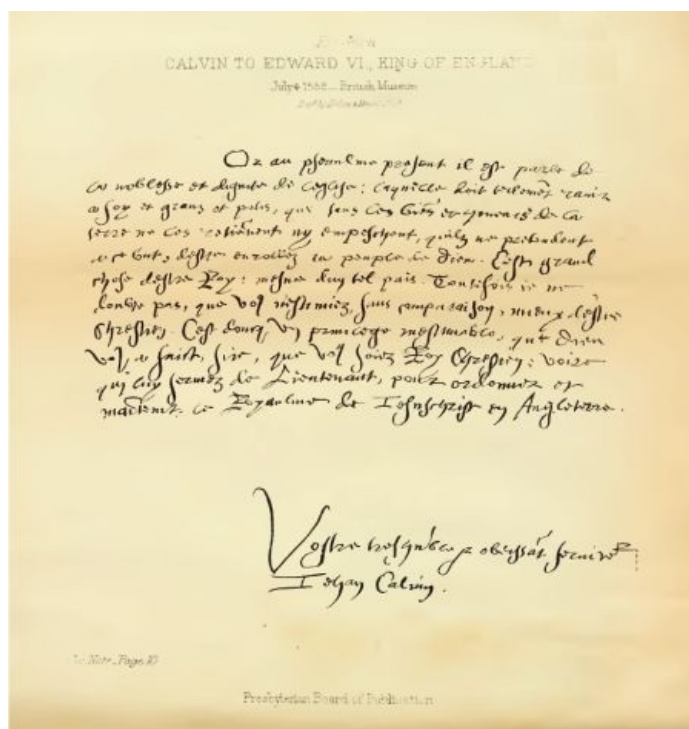 CALVIN TO EDWARD VI., KING OF ENGLAND
July 4 1552 – British Museum
Or au pseaulme present il est parle de
la noblesse et dignite de leglise: laquelle doit tellemēt ravir
a soy et grans et petis, que tous les biēs et honeurs de la
terre ne les retiēnent ny empeschent, quilz ne pretendent
a ce but, destre enrollez au peuple de Dieu. Cest grand
chose destre Roy: mesme dun tel pais. Toutesfois ie ne
doubte pas, que vous nestimiez, sans comparaison, mieux destre
Chrestien. Cest doncq un privilege inestimable, que Dieu
vous a faict, Sire, que vous soiez Roy Chrestien: voire
que luy servez de Lieutenant, pour ordonner et
maītenir le Royaulme de Iesuschrist en Angleterre.
Vostre treshūble & obeissāt serviteur
Iehan Calvin.
Note, Page 10
Presbyterian Board of Publication